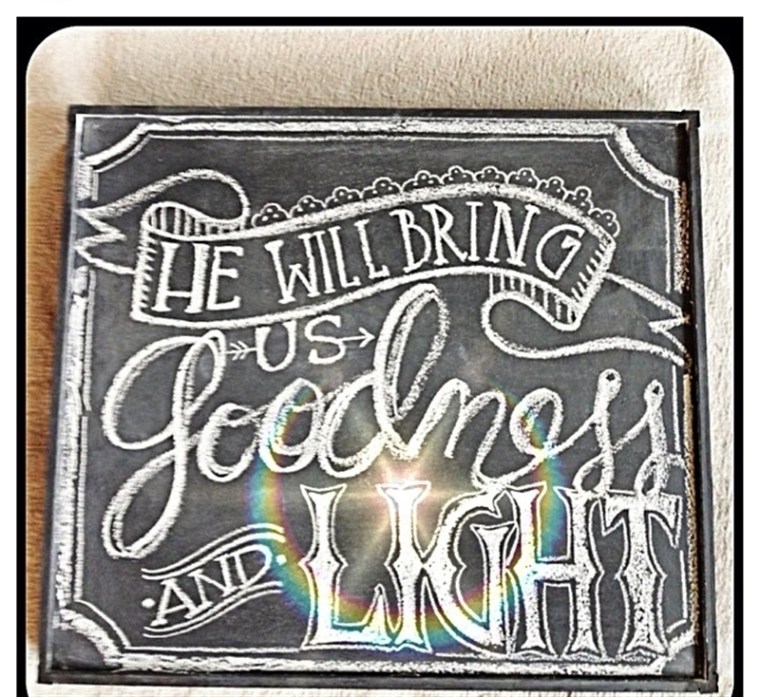 HE WILL BRING
US
Goodness
AND LIGHT